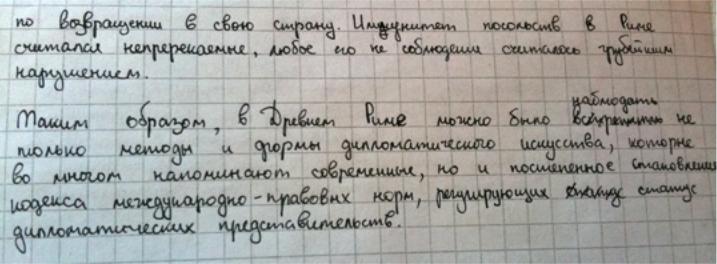 по возвращении в свою страну. Иммунитет посольств в Риме
считался непререкаемым, любое его не соблюдение считалось грубейшим
нарушением.
наблюдать
Таким образом, в Древнем Риме можно было не
только методы и формы дипломатического искусства, которые
во многом напоминают современные, но и постепенное становление
кодекса международно-правовых норм, регулирующих статус
дипломатических представительств.